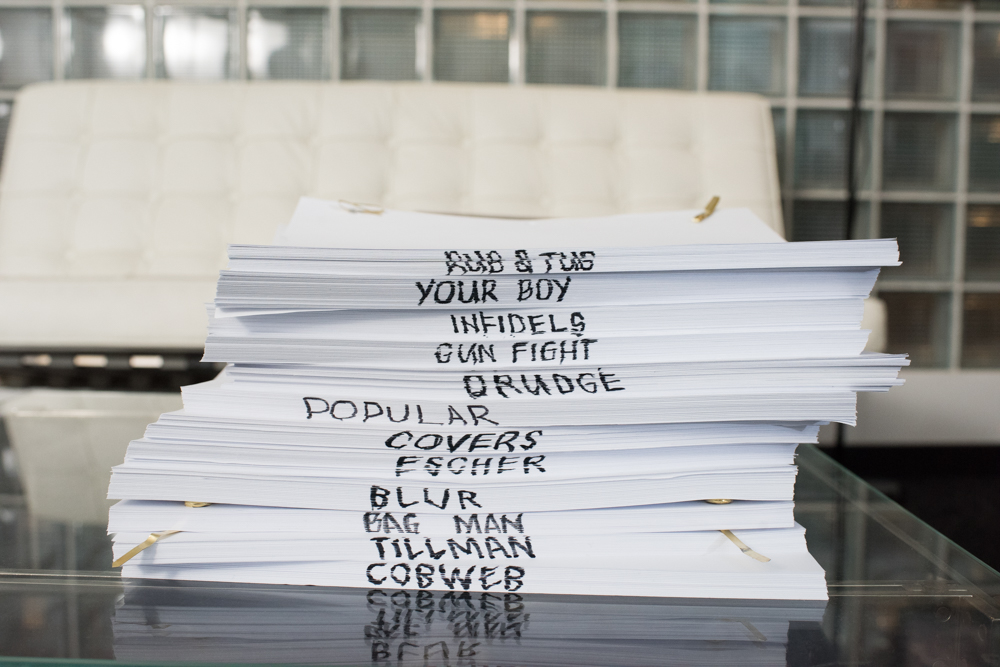 RUB & TUG
YOUR BOY
INFIDELS
GUN FIGHT
DRUDGE
POPULAR
COVERS
ESCHER
BLUR
BAG MAN
TILLMAN
COBWEB